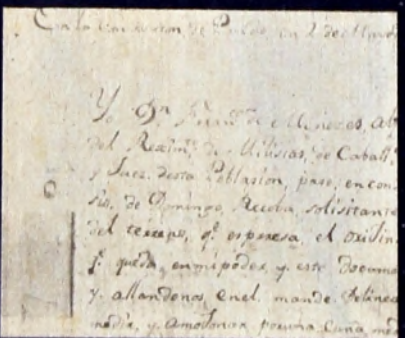 En la Poblasion de Pando, en 2 de Mayo
Yo Dn. Franco. de Meneses, Alfz.
del Reximto. de Milisias, de Caballa.
y Juez desta Poblasion, paso, en con
de Domingo, Recoba, solisitante
del terreno, qe. espresa, el
qe. queda, en mi poder, y este Docume
y allandonos, enel. mande Delinea
media, y Amojonar por una Caña, med